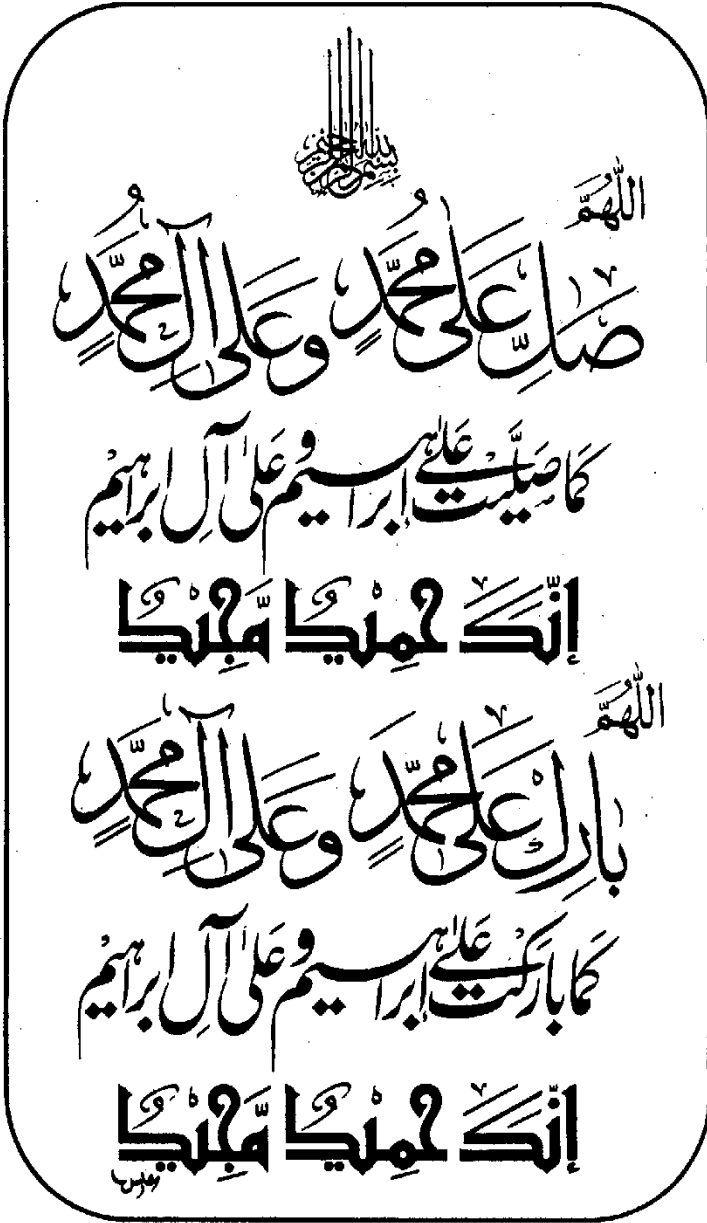 بسم الله الرحمن الرحيم
اللَّهُمَّ
صَلِّ عَلَى مُحَمَّدٍ وَعَلَى آلِ مُحَمَّدٍ
كَمَا صَلَّيْتَ عَلَىٰ إِبْرَاهِيمَ وَعَلَىٰ آلِ إِبْرَاهِيمَ
إِنَّكَ حَمِيْدٌ مَّجِيْدٌ
اللَّهُمَّ
بَارِكْ عَلَى مُحَمَّدٍ وَعَلَى آلِ مُحَمَّدٍ
كَمَا بَارَكْتَ عَلَىٰ إِبْرَاهِيمَ وَعَلَىٰ آلِ إِبْرَاهِيمَ
إِنَّكَ حَمِيْدٌ مَّجِيْدٌ